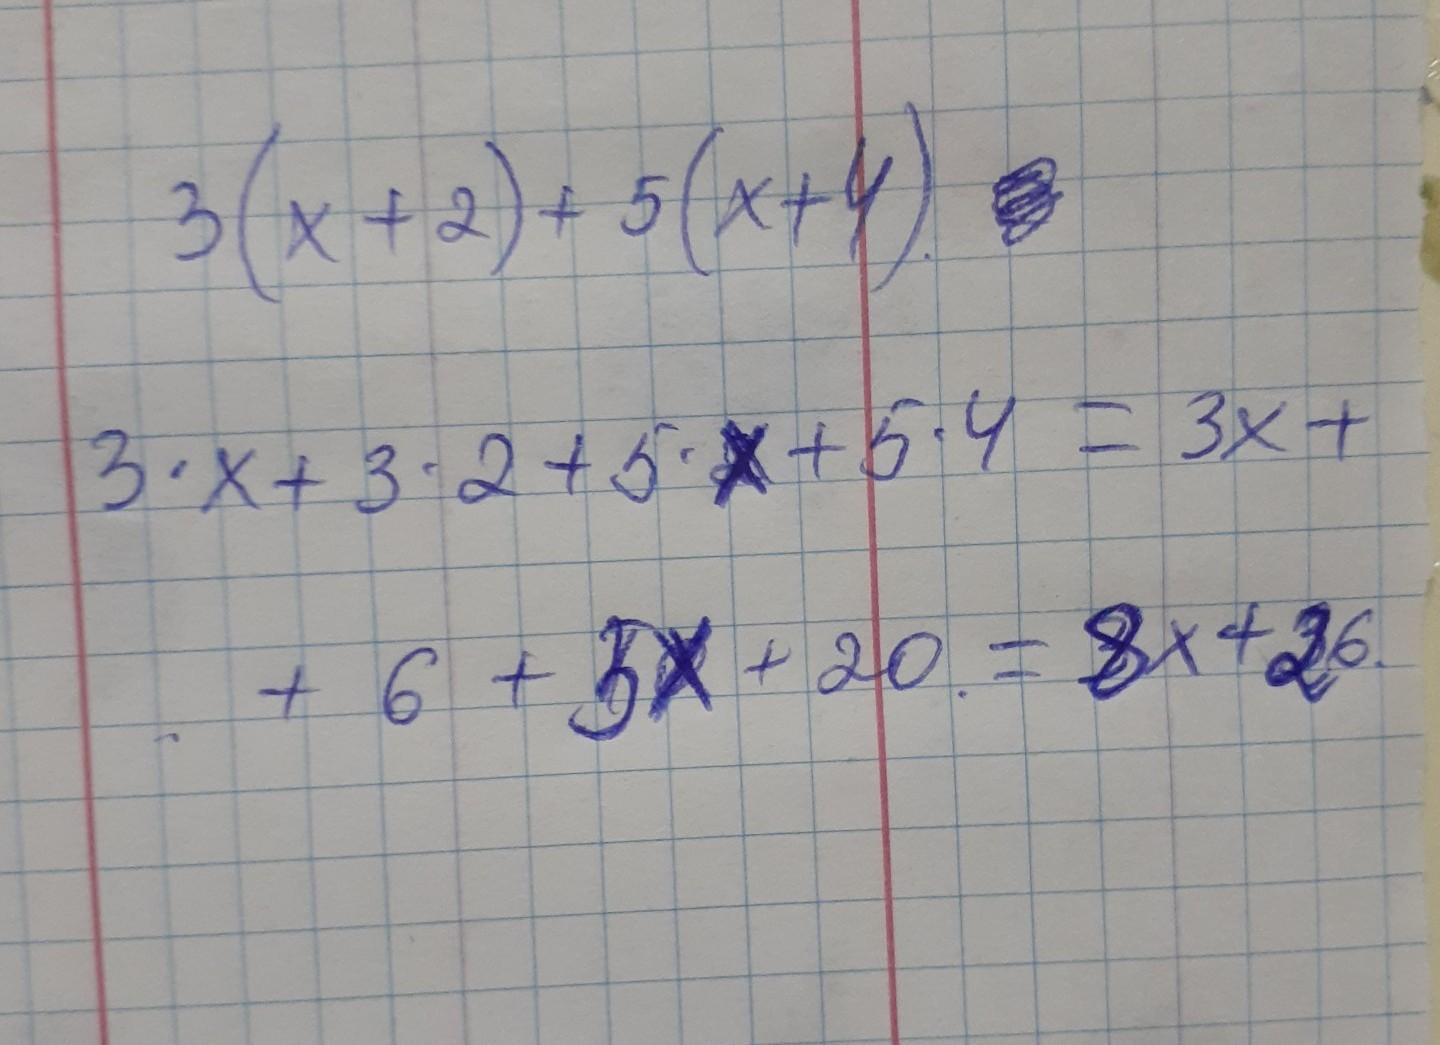 3(x+2)+5(x+4).
3·x+3·2+5·x+5·4=3x+
+6+5x+20.=8x+26.